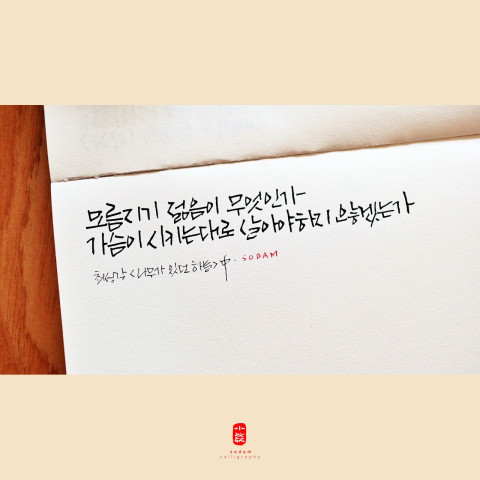 모름지기 젊음이 무엇인가
가슴이 시키는대로 살아야하지 않겠는가
최성각 <나무가 있던 하늘> 中. SODAM
sodam
calligraphy